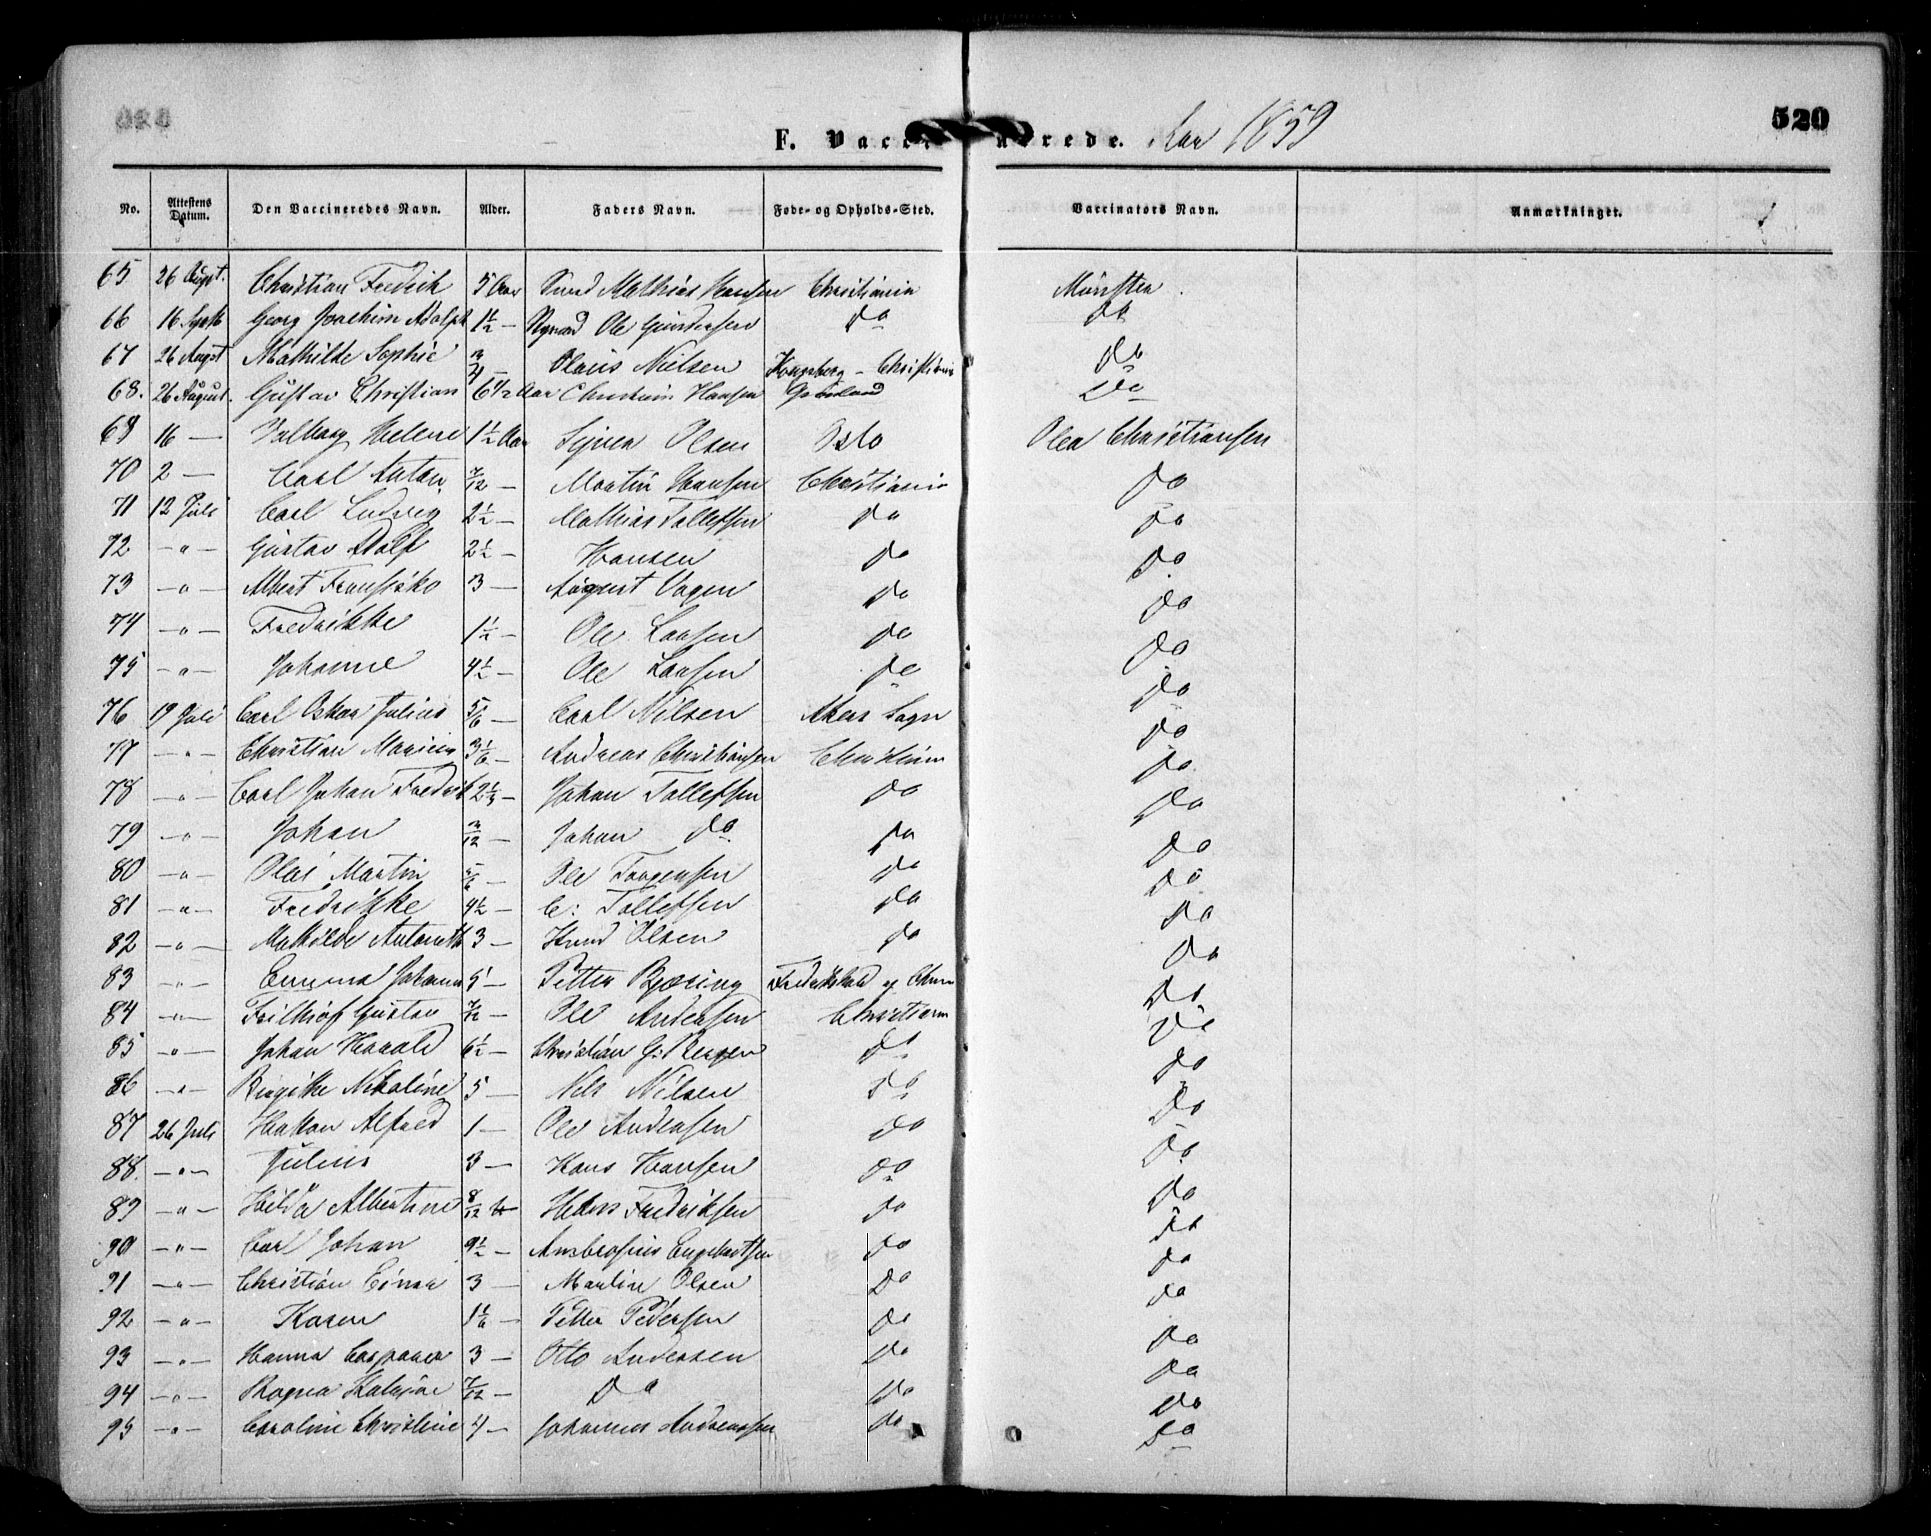 520
F. Vacc nerede. Aar 1859
No. Attestens Datum. Den Vaccineredes Navn. Alder. Faders Navn. Føde- og Opholds-Sted. Vaccinators Navn. Anmærkninger.
65 26 Augst. Christian Fredrik 5 Aar Mathias Hansen Christiania
66 16 Septb Georg Joachim Adolph 1½ — Ole Gundersen Do Do
67 26 Augst Mathilde Sophie 3/4 — Olaus Nielsen Kongsberg - Christiania Do
68. 26 August. Gustav Christian 6 1/2 Aar Christian Hansen Grønland Do
69 16 — Valborg Helene 1½ Aar Syver Olsen Oslo Olea Christiansen
70 2 — Carl Anton 7/12 — Martin Hansen Christiania Do
71 12 Juli Carl Ludvig 2½ — Mathias Tollefsen Do Do
72 — " — Gustav Adolf 2½ — Hansen Do Do
73 — " — Albert Fransisko 3 — August Vagen Do Do
74 — " — Fredrikke 1½ — Ole Larsen Do Do
75 — " — Johanne 4½ — Ole Larsen Do Do
76 19 Juli Carl Oskar Julius 5/6 — Carl Nilsen Akers Sogn Do
77 — " — Christian Marius 3 1/6 — Andreas Christiansen Christiania Do
78 — " — Carl Johan Fredrik 2⅓ — Johan Tollefsen Do Do
79 — " — Johan 3/12 — Johan Do Do Do
80 — " — Olaf Martin 5/6 — Ole Torgersen Do Do
81 — " — Fredrikke 4½ — C: Tollefsen Do Do
82 — " — Mathilde Antonette 3 — Knud Olsen Do Do
83 — " — Emma Johanna 5 — Petter Bjøring Fredrikshald og Chra Do
84 — " — Frithjof Gustav 7/12 — Ole Andersen Christiania Do
85 — " — Johan Harald 6½ — Christian G: Bergen Do Do
86 — " — Birgitte Nikoline 5 — Nels Nilsen Do Do
87 26 Juli Hakon Alfred 1 — Ole Andersen Do Do
88. — " — Julius 3 — Hans Hansen Do Do
89 — " — Hilda Albertine 8/12 Hans Fredriksen Do Do
90 — " — Carl Johan 9½ — Ambrosius Engebretsen Do Do
91 — " — Christian Einar 3 — Martin Olsen Do Do
92 — " — Karen 1 1/6 — Petter Pedersen Do Do
93 — " — Hanna Caspara 3 — Otto Andersen Do Do
94 — " — Ragna 7/12 — Do Do Do
95 — " — Caroline Christine 4 — Johannes Andreassen Do Do